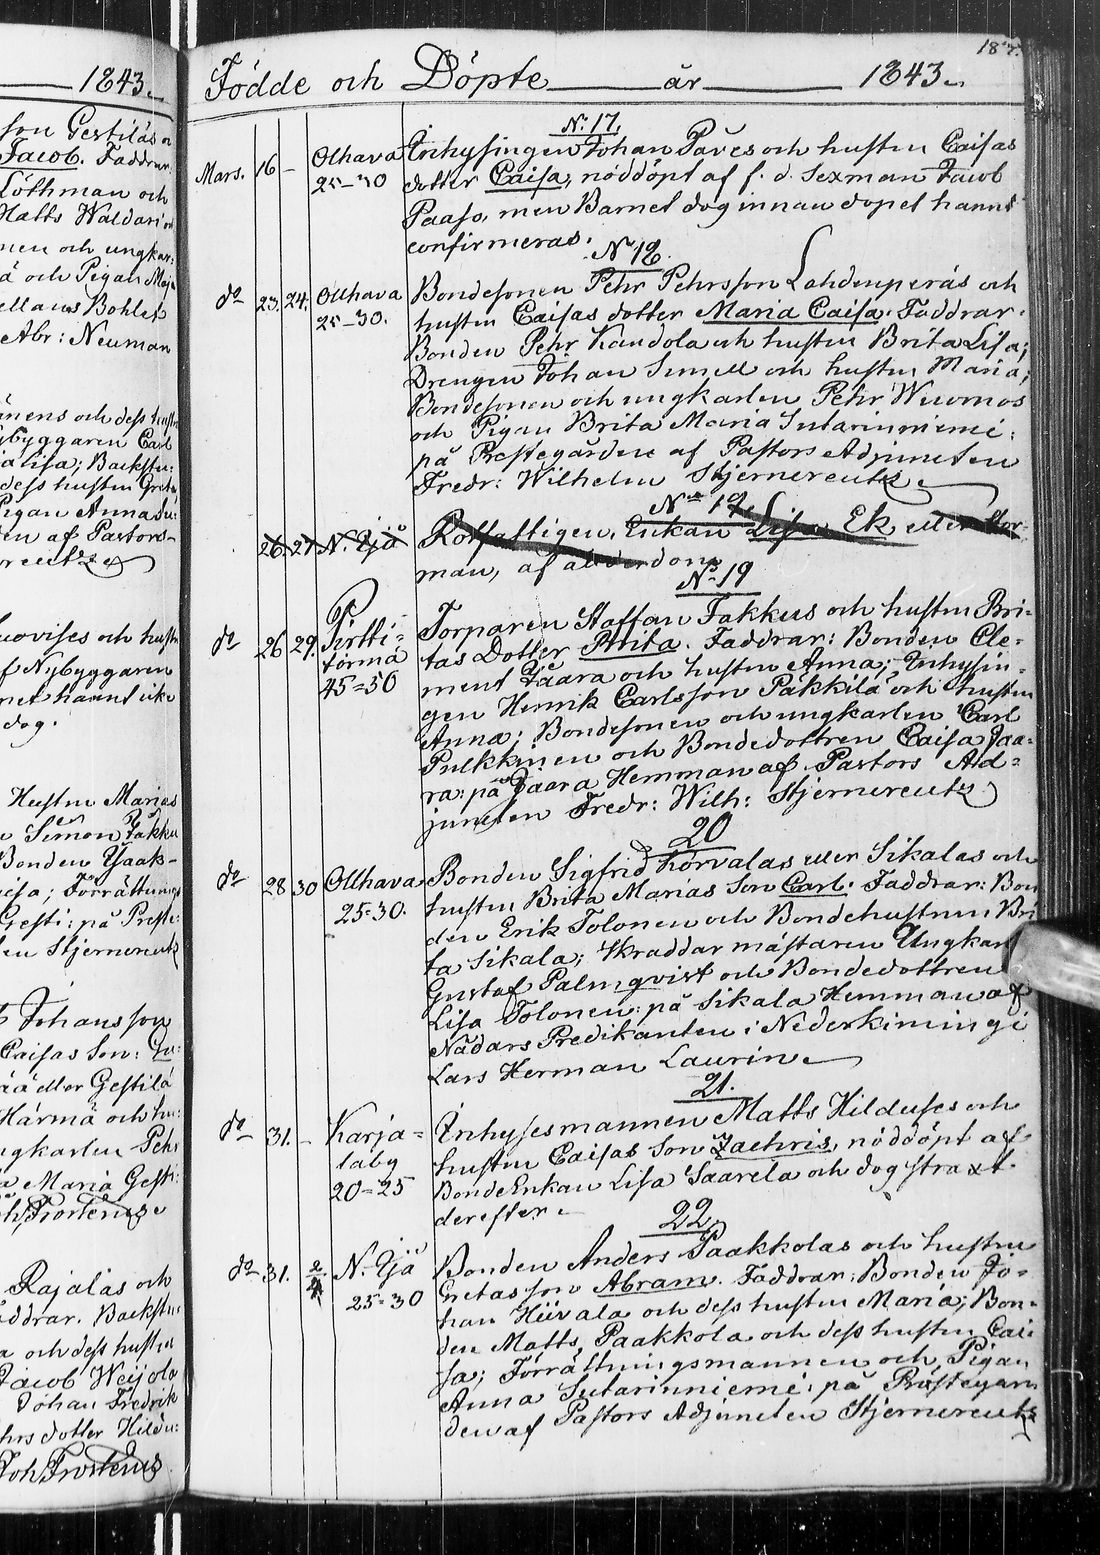 1843.
son Gestilas o
Jacob. Faddrar:
Löthman och
Matts Waldari
men och ungkar:
ä och Pigan Maja
ellans Bohlet
Abr: Neuman
änens och dess hustru
ybyggaren Carl
ia Lisa; Backstu:
dess hustru Greta
Pigan Anna Su:
en af Pastors-
reutz
uovises och hustru
f Nybyggaren
net hannt icke
dog.
Hustru Marias
n Simon Takku
Bonden Yaak-
isa; Förrättnings
Gesti: på Preste:
en Stjernereutz
Johansson
Caisas Son: Jo:
ää eller Gestilä
Härmä och hu:
ngkarlen Pehr
a Maria Gesti:
Joh: Frosterus
Rajalas och
äddrar. Backstu
a och dess hustru
Jacob Weijola
Johan Fredrik
hrs dotter Hildu:
Joh: Frosterus
187.
Födde och Döpte år 1843.
No 17.
Mars. 16 – Olhava Inhysingen Johan Paves och hustru Caisas
25–30 dotter Caisa, nöddöpt af f. d. Sexman Jacob
Paaso, men Barnet dog innan dopet hannt
confirmeras.
No 18.
do 23. 24. Ollhava Bondesonen Pehr Pehrsson Lahdenperäs och
25–30. hustru Caisas dotter Maria Caisa. Faddrar:
Bonden Pehr Kandola och hustru Brita Lisa;
Drengen Johan Simell och hustru Maria;
Bondesonen och ungkarlen Pehr Wuornos
och Pigan Brita Maria Sutarinniemi:
på Prestegården af Pastors Adjuncten
Fredr: Wilhelm Stjernereutz
No 19.
26 27 N. Yjä Rotfattigen, Enkan Lisa Ek eller Hor-
man, af ålderdom
No 19
do 26 29. Pirtti- Torparen Staffan Takkus och hustru Bri-
törmä tas Dotter Brita. Faddrar: Bonden Cle-
45=50 ment Jaara och hustru Anna; Inhysin-
gen Henrik Carlsson Päkkilä och hustru
Anna; Bondesonen och ungkarlen Carl
Pulkkinen och Bondedottren Caisa Jaa-
ra: på Jaara Hemman af Pastors Ad-
juncten Fredr: Wilh: Stjernereutz
20
do 28 30 Ollhava Bonden Sigfrid Korvalas eller Sikalas och
25=30. hustru Brita Marias Son Carl. Faddrar: Bon
den Erik Tolonen och Bondehustrun Bri
ta Sikala; Skraddar mästaren Ungkar
Gustaf Palmqvist och Bondedottren
Lisa Tolonen: på Sikala Hemman af
Nådårs Predikanten i Nederkimingi
Lars Herman Laurin
21.
do 31. – Karja- Inhysesmannen Matts Hilduses och
laby hustru Caisas Son Zachris, nöddöpt af
20=25 BondeEnkan Lisa Saarela och dog straxt
derefter.
22.
do 31. 2/4 N. Yjä Bonden Anders Paakkolas och hustru
25=30 Gretas son Abram. Faddrar: Bonden Jo-
han Hiivala och dess hustru Maria; Bon-
den Matts Paakkola och dess hustru Cai
sa; Förrättningsmannen och Pigan
Anna Sutarinniemi: på Prästegår
den af Pastors Adjuncten Stjernereutz